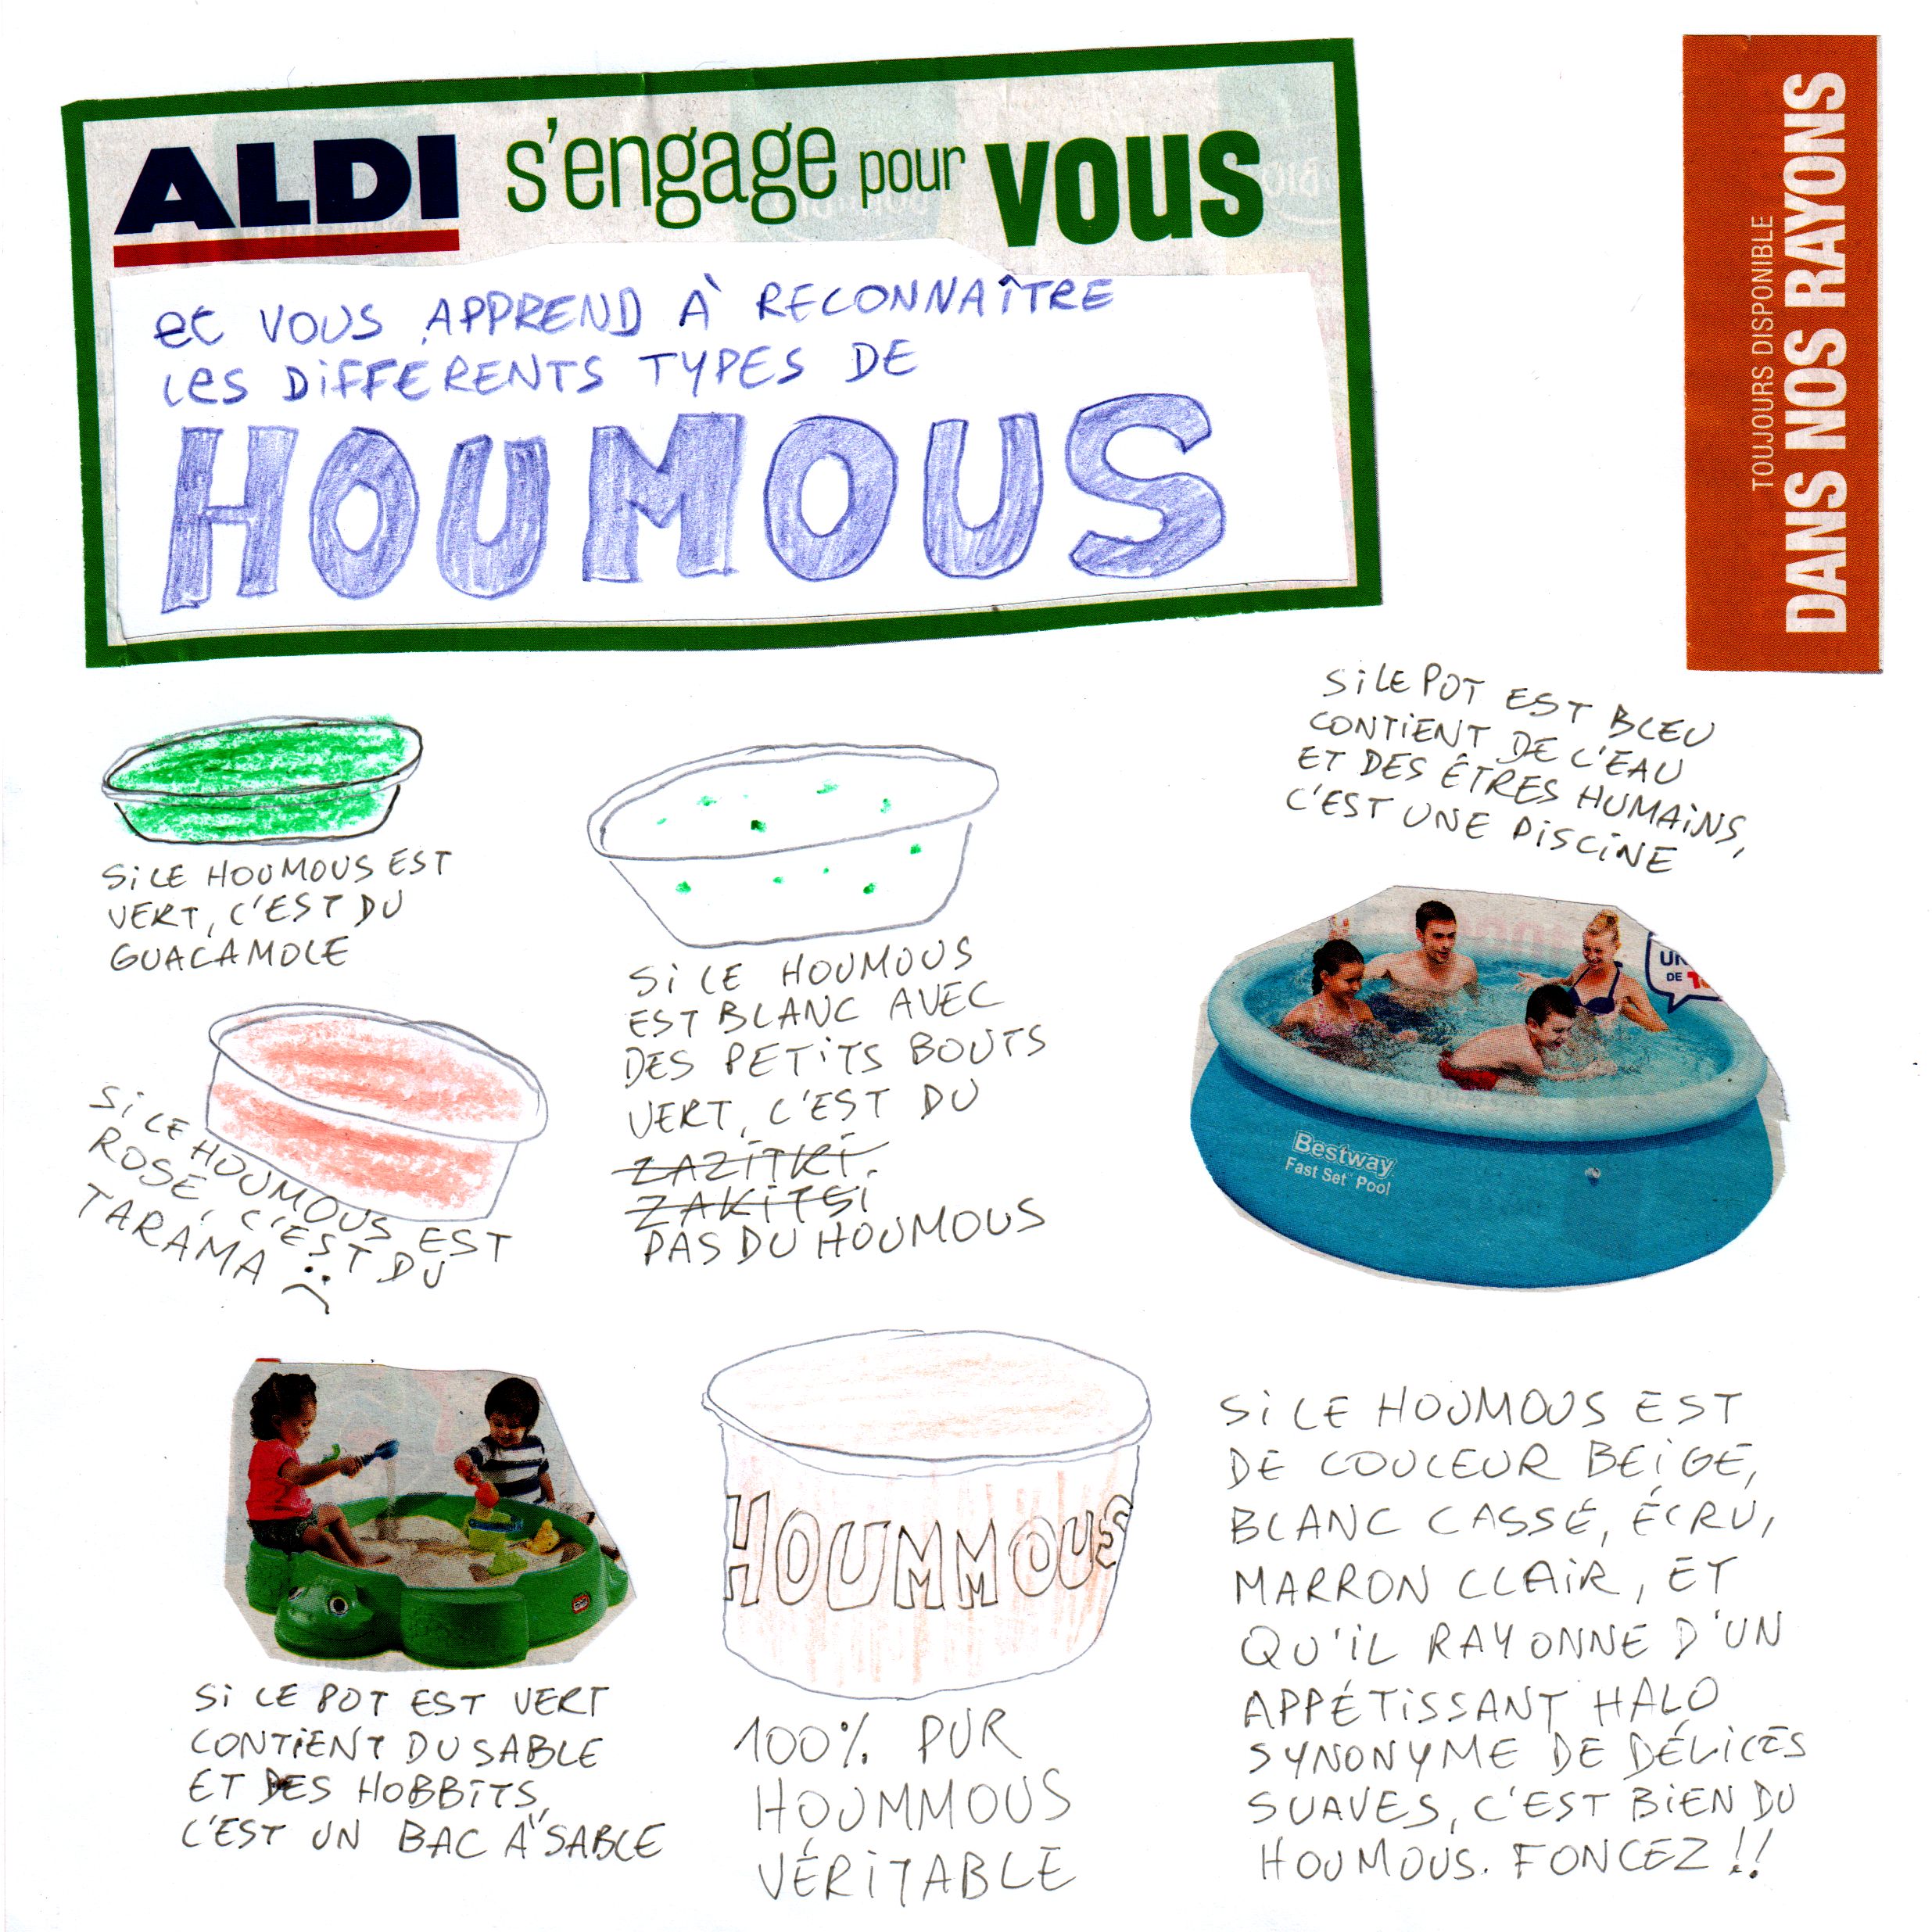 ALDI s'engage pour vous
et VOUS APPREND À RECONNAÎTRE
LES DIFFERENTS TYPES DE
HOUMOUS
TOUJOURS DISPONIBLE
DANS NOS RAYONS
SI LE HOUMOUS EST
VERT, C'EST DU
GUACAMOLE
SI LE HOUMOUS
EST BLANC AVEC
DES PETITS BOUTS
VERT, C'EST DU
ZAZITKI.
ZAKITSI
PAS DU HOUMOUS
SI LE POT EST BLEU
CONTIENT DE L'EAU
ET DES ÊTRES HUMAINS,
C'EST UNE PISCINE
UN
DE 10
Bestway
Fast Set Pool
SI LE HOUMOUS EST
ROSE, C'EST DU
TARAMA :(
SI LE POT EST VERT
CONTIENT DU SABLE
ET DES HOBBITS,
C'EST UN BAC À SABLE
HOUMMOUS
100% PUR
HOUMMOUS
VÉRITABLE
SI LE HOUMOUS EST
DE COULEUR BEIGE,
BLANC CASSÉ, ÉCRU,
MARRON CLAIR, ET
QU'IL RAYONNE D'UN
APPÉTISSANT HALO
SYNONYME DE DÉLICES
SUAVES, C'EST BIEN DU
HOUMOUS. FONCEZ !!